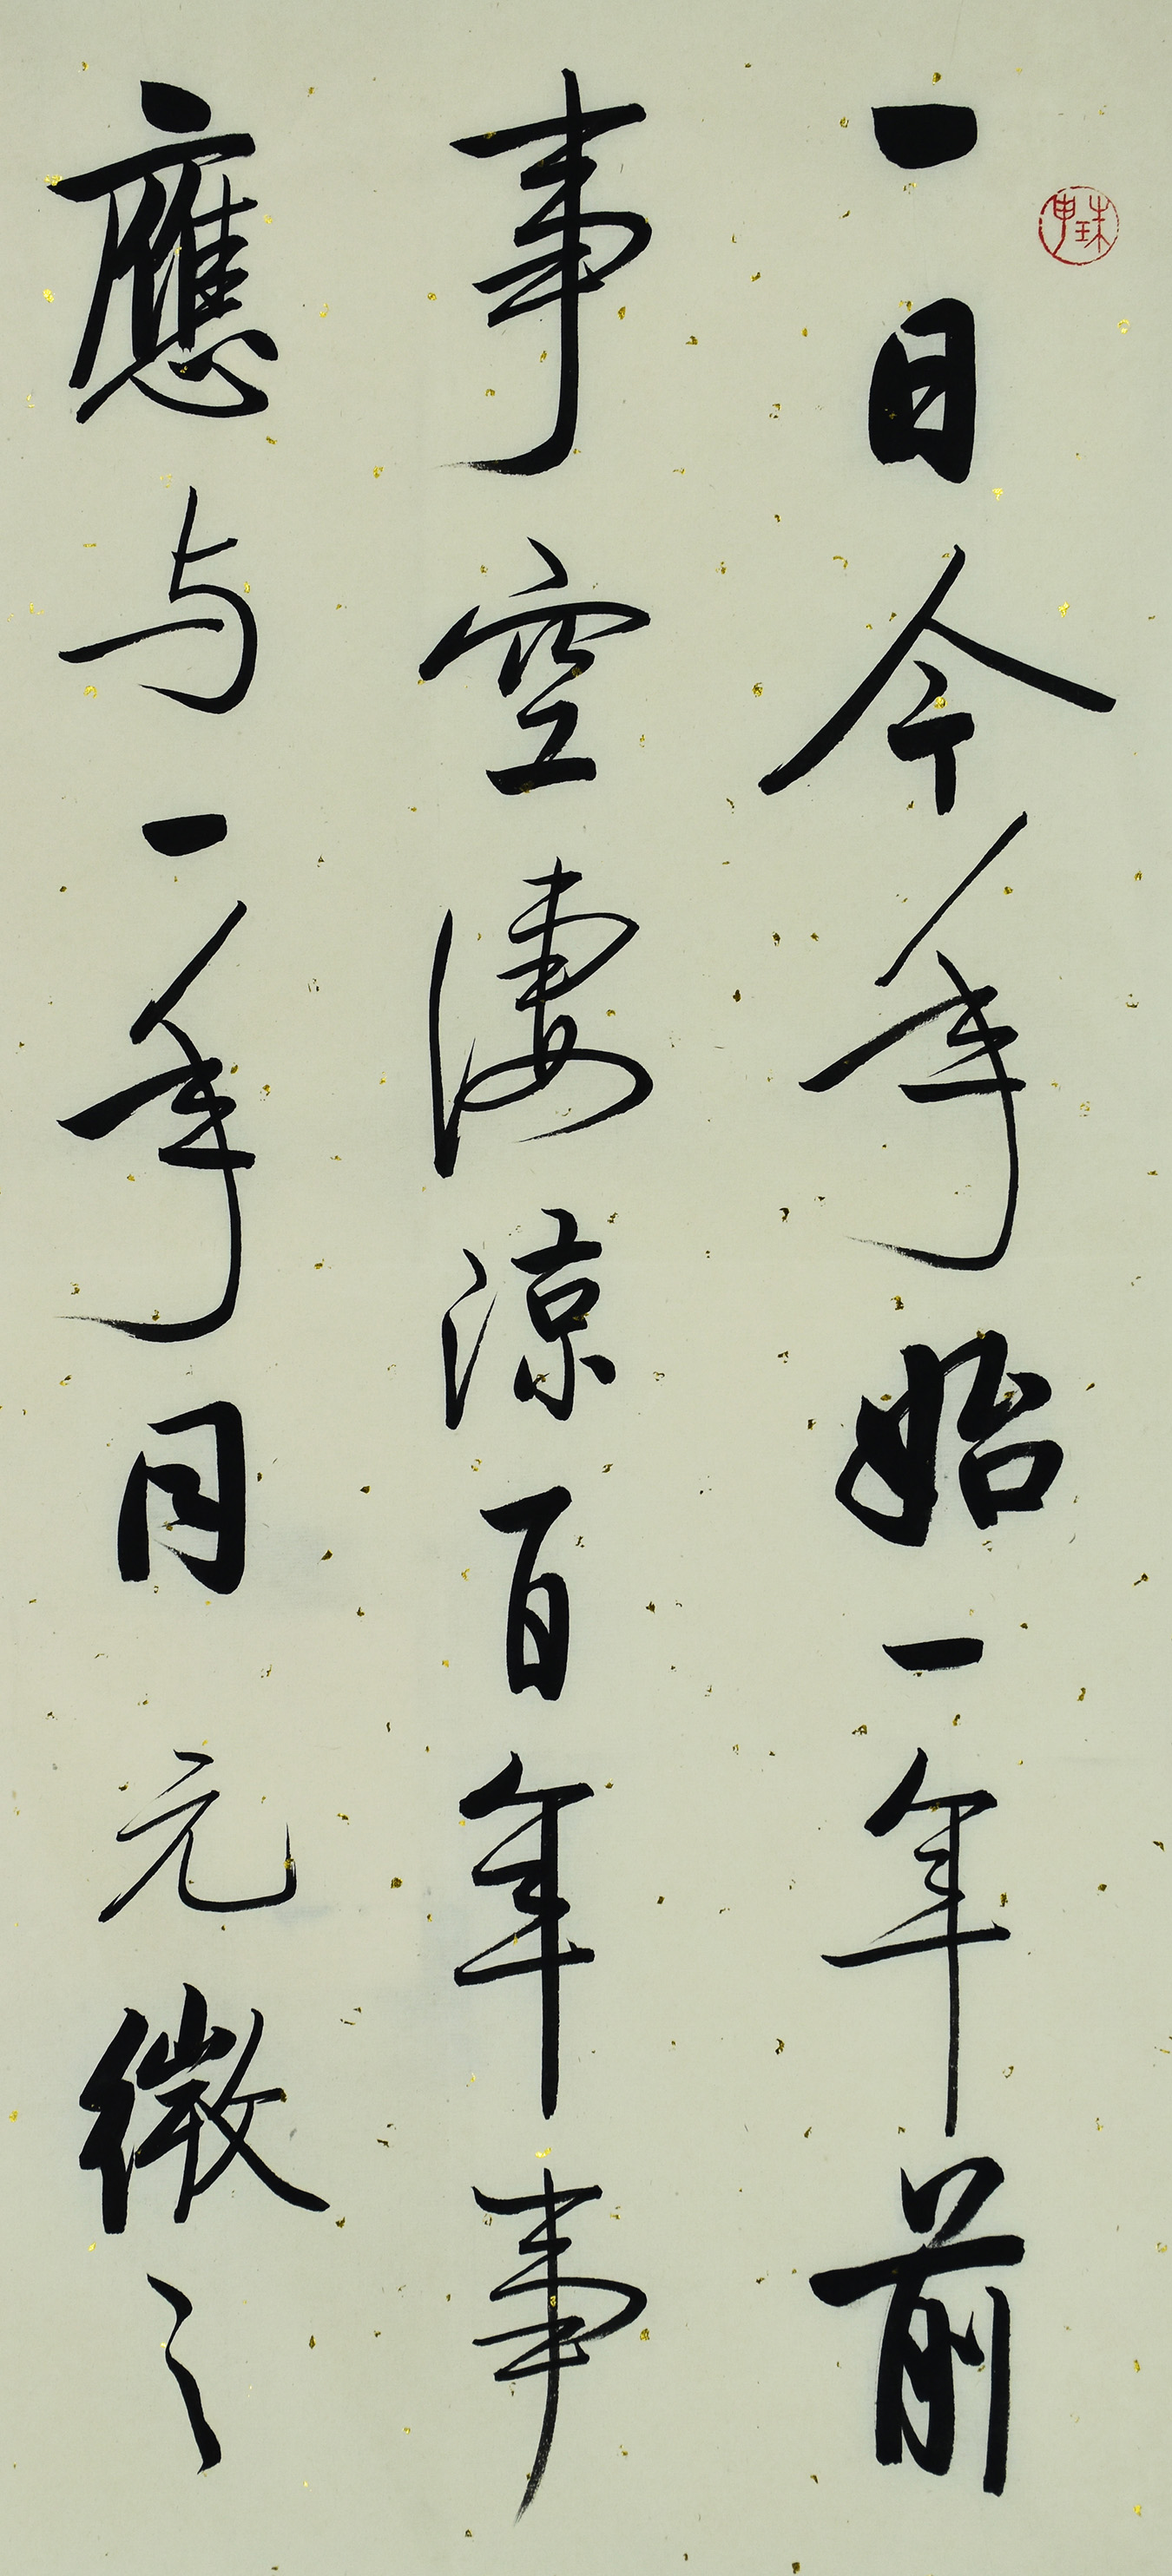 一日今年始一年前
事空淒涼百年事
應与一年同元微之